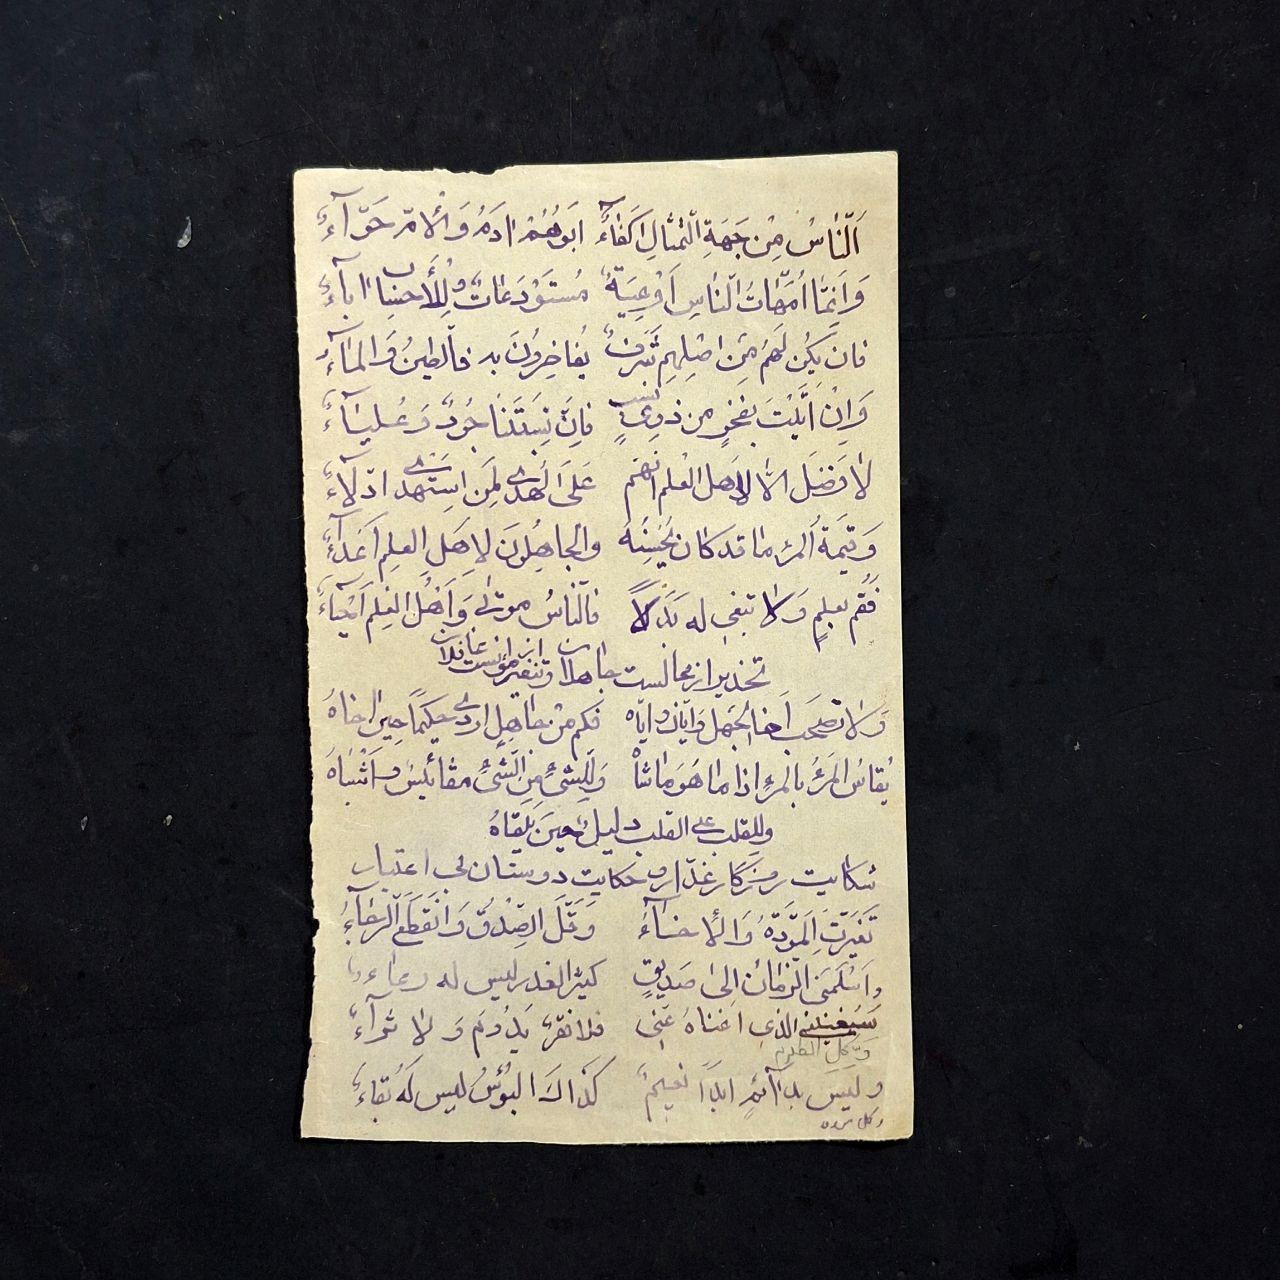 اَلنّاسُ مِنْ جَهَةِ التِّمثالِ اَکفآءُ اَبوهُمْ ادَمُ وَالْأُمّ حَوّآءُ
وَاِنَّمٰا اُمَّهٰاتُ النّاسِ اَوْعِیَةٌ مُستَوْدَعٰاتٌ وَلِلْأَحسٰابِ اٰبآءُ
فان یَکُن لَهُم مِن اصْلِهِم شَرَفٌ یُفاخِروُنَ بِه فالطّینُ وَالمٰآءُ
وَاِنْ اَتَیْتَ بفَخرٍ من ذوی نسبٍ فاِنَّ نِسْبَتَنا جُودٌ وَعُلیٰآءُ
لٰا فَضلَ الّا لاَهل العْلم انهّم عَلَی الْهُدی لِمَن اسِتَهدی ادَلّآءُ
وَقیمَةُ المَرْء مٰا قد کٰان یُحْسِنُهُ والجٰاهِلُونَ لِاَهلِ العِلمِ اَعدٰآءُ
فَقُم بعلمٍ وَلٰا تبغی له بَدَلاً فالنّاسُ موتٰی وَاَهْلُ العِلمِ اَحْیٰآءُ
تحذیر از مجالست جاهلان وتنفیر از مؤنست غافلان
وَلٰا تصَحَب اَخا الجَهل وَایّاک وایّاه فکم مْن جاهِلٍ اردی حکیمًا حین اخاهُ
یُقاسُ المَرءُ بالمرءِ اذا مٰا هُوَ مٰا شٰاْ وَلِلِشئِ مِنَ الشّئِ مقائیسُ واَشْبٰاهُ
وللِقلب علی القلب دلیلٌ حینَ یَلقاهُ
شکایت روزکار غدّار و حکایت دوستان بی اعتبار
تَغَیَرَّتِ المَودّةُ وَالْأخآءُ وَقَلَّ الصِّدْقُ وَانْقَطَعَ الرَّجآءُ
واَسْلَمنَی الزمٰانُ اِلیٰ صَدیقٍ کثیر الغدر لیس له رعٰاءُ
سَیُغنینی الذی اغناهُ عَنّی فلا فقرٌ یَدُومُ وَلٰا ثرآءُ
وَلیسَ بدٰآئمٍ ابدًا نعیمٌ کذاکَ البؤُسُ لیس لَهُ بَقٰاءُ